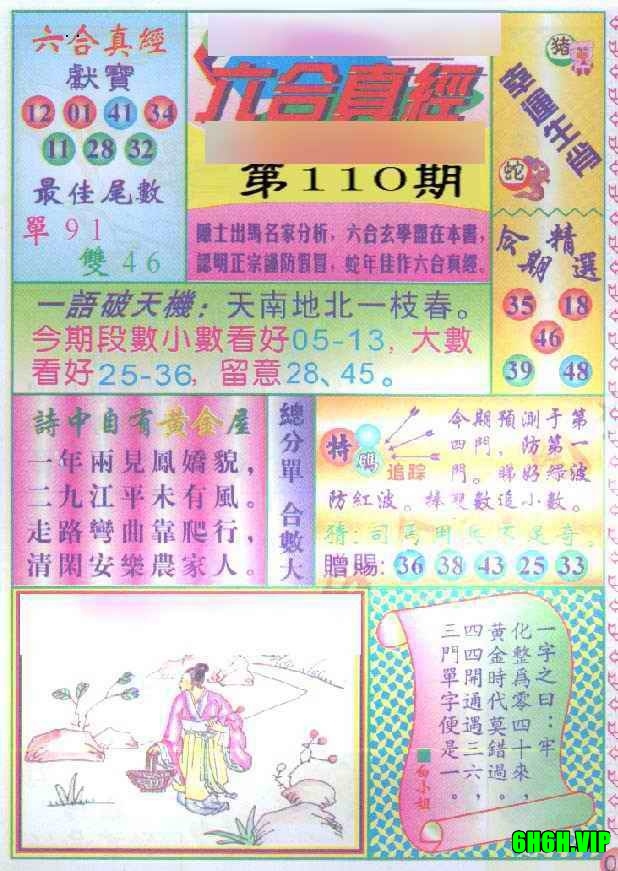 六合真經
獻寶
12 01 41 34
11 28 32
最佳尾數
單91
雙46
六合真經
第110期
隱士出馬名家分析，六合玄學盡在本書，
認明正宗謹防假冒，蛇年佳作六合真經。
豬
蛇
今期精選
35 18
46
39 48
一語破天機：天南地北一枝春。
今期段數小數看好05-13，大數
看好25-36，留意28、45。
詩中自有黃金屋
一年兩見鳳嬌貌，
二九江平未有風。
走路彎曲靠爬行，
清閑安樂農家人。
總分單 合數大
特碼
追踪
今期預測于第
四門，防第一
門。睇好綠波
防紅波。捧雙數追小數。
猜：司馬用兵不足奇。
贈賜：36 38 43 25 33
一字之曰：牢
化整爲零四十來，
黃金時代莫錯過，
四四開通遇三六，
三門單字便是一。
白小姐
6H6H.VIP